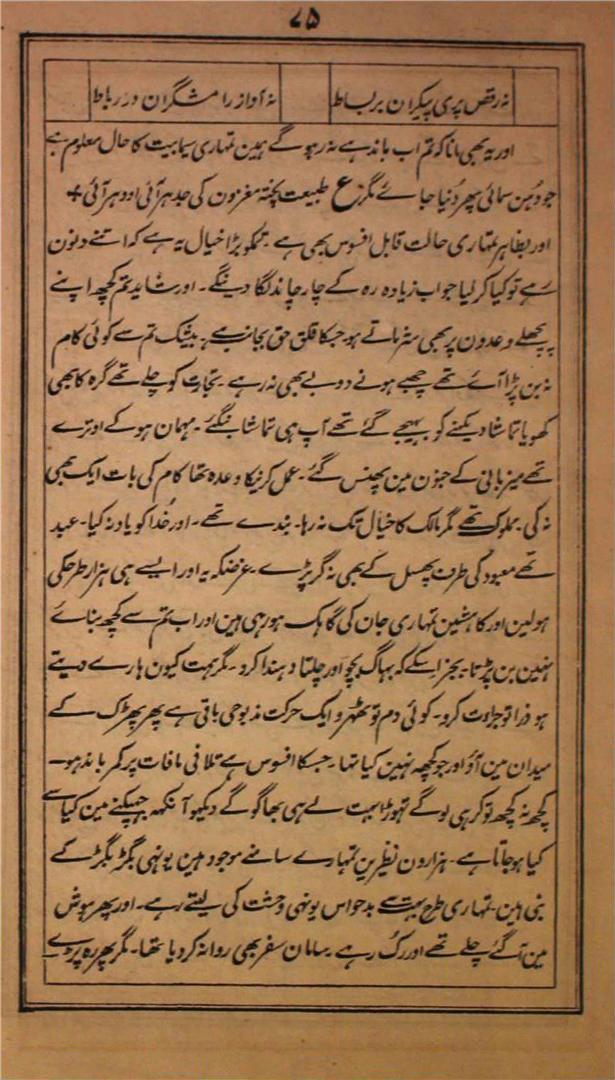 ۷۵
نہ رقص پری پیکران بر بساط نہ آواز رامشگران در رباط
اور یہ بھی مانا کہ تم اب باندہے نہ رہو گے ہمین تمہاری سیمابیت کا حال معلوم ہے
جو دہن سمائی پھر دُنیا جاے مگر ع طبیعت پختہ مغزون کی جدہر آئی اودہر آئی +
اور بظاہر تمہاری حالت قابل افسوس بھی ہے ۔ تمکو بڑا خیال یہ ہے کہ اتنے دنون
رہے تو کیا کر لیا جو اب زیادہ رہ کے چار چاند لگا دینگے ۔ اور شاید تم کچھ اپنے
پچھلے وعدون پر بھی شرماتے ہو جسکا قلق حق بجانب ہے ۔ بیشک تم سے کوئی کام
نہ بن پڑا آے تھے چھبے ہونے دوبے بھی نہ رہے ۔ تجارت کو چلے تھے گرہ کا بھی
کھویا تماشا دیکہنے کو بہیجے گئے تھے آپ ہی تماشا بنگئے ۔ مہمان ہو کے اوترے
تھے میزبانی کے جنون مین پھنس گئے ۔ عمل کرنیکا وعدہ تھا کام کی بات ایک بھی
نہ کی ۔ مملوک تھے مگر مالک کا خیال تک نہ رہا ۔ بندے تھے ۔ اور خُدا کو یاد نہ کیا ۔ عبد
تھے معبود کی طرف پھسل کے بھی نہ گر پڑے ۔ غرضکہ یہ اور ایسے ہی ہزار طرحکی
ہولین اور کاہشین تمہاری جان کی گاہک ہو رہی ہین اور اب تم سے کچھ بناے
نہین بن پڑتا بجز اسکے کہ بہاگ بچو اور چلتا دہندا کرو ۔ مگر ہمت کیون ہارے دیتے
ہو ذرا تو جراءت کرو ۔ کوئی دم تو ٹھہرو ایک حرکت مذبوحی باقی ہے پھر پھڑک کے
میدان مین آؤ اور جو کچھہ نہین کیا تہا ۔ جسکا افسوس ہے تلافی مافات پر کمر باندہو ۔
کچھ نہ کچھ تو کر ہی لوگے تہوڑا بہت لے ہی بھاگو گے دیکہو آنکہہ جہپکنے مین کیا سے
کیا ہو جاتا ہے ۔ ہزارون نظرین تمہارے سامنے موجود ہین یونہی بگڑ بگڑ کے
بنی ہین ۔ تمہاری طرح بہت سے بدحواس یونہی وحشت کی لیتے رہے ۔ اور پھر ہوش
مین آگئے چلے تھے اور رک رہے ۔ سامان سفر بھی روانہ کر دیا تھا ۔ مگر پھر رہ پڑے